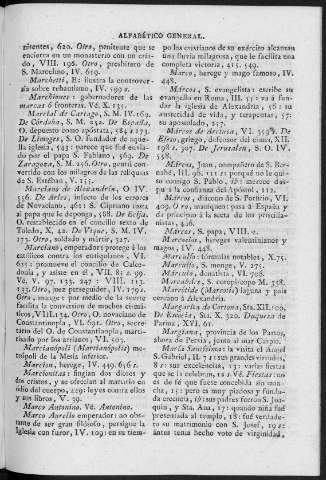 ALFABÉTICO GENERAL.
nitentes, 620. Otro, penitente que se
encierra en un monasterio con un criado,
VIII. 196. Otro, presbítero de
S. Marcelino, IV. 619.
Marchetti, E: ilustra la controversia
sobre rebautismo, IV. 599 s.
Marciales: gobernadores de las
marcas ó fronteras. Vé. X. 131.
Marcial de Cartago, S. M. IV. 169.
De Córdoba, S. M. 252. De España,
O. depuesto como apóstata, 584 s 273.
De Limoges, S. O. fundador de aquella
iglesia, 543: parece que fué enviado
por el papa S. Fabiano, 569. De
Zaragoza, S. M. 256. Otro, gentil convertido
con los milagros de las reliquias
de S. Estéban, V. 153.
Marciano de Alexandría, O. IV.
556. De Arles, infecto de los errores
de Novaciano, 461: S. Cipriano insta
al papa que le deponga, 568. De Ecija.
O. restablecido en el concilio sexto de
Toledo, X. 42. De Vique, S. M. IV.
273. Otro, soldado y mártir, 327.
Marciano, emperador: protege á los
católicos contra los eutiquianos, VI.
65: promueve el concilio de Calcedonia,
y asiste en él, VII. 85: 2. 99.
Vé. V. 97. 135. 247: VIII. 113.
133. Otro, juez perseguidor, IV. 179 s.
Otro, monge: por medio de la suerte
facilita la conversion de muchos cismáticos,
VI. 134. Otro, O. novaciano de
Constantinopla, VI. 691. Otro, secretario
del O. de Constantinopla, martirizado
por los arrianos, VI. 503.
Marcianópoli (Martianópolis) metrópoli
de la Mesia inferior.
Marcion, herege, IV. 449. 616 s.
Marcionitas: fingian dos dioses y
dos cristos, y se ofrecian al martirio en
odio del cuerpo, 229: leyes contra ellos
y sus libros, V. 39.
Marco Antonino. Vé. Antonino.
Marco Aurelio emperador: no obstante
de ser gran filósofo, persigue la
Iglesia con furor, IV. 109: en su tiempo
los cristianos de su exército alcanzan
una lluvia milagrosa, que le facilita una
completa victoria, 415. 549.
Marco, herege y mago famoso, IV.
448.
Márcos, S. evangelista: escribe su
evangelio en Roma, III. 55: va á fundar
la iglesia de Alexandría, 56: su
austeridad de vida, y terapeutas, 57:
su apostolado, 217.
Márcos de Aretusa, VI. 359. De
Efeso, griego, defensor del cisma, XII.
198 s. 307. De Jerusalen, S. O. IV.
558.
Márcos, Juan, compañero de S. Bernabé,
III. 98. 111: porqué no le quiso
consigo S. Pablo, 12: merece después
la confianza del Apóstol, 112.
Márcos, discono de S. Potino, VI.
409. Otro, maniqueo: pasa á España y
da principio á la secta de los priscilianistas,
436.
Márcos, S. papa, VIII.
Marcosios, hereges valentinianos y
magos, IV. 448.
Marculfo: fórmulas notables, X. 75.
Marculfo, S. monge, V. 275.
Márculo, donatista, VI. 508.
Maradeks, S. corepiscopo M. 358.
Mareótide (Mareotis) laguna y pais
cercano á Alexandría.
Margarita de Cortona, Sta. XII. 109.
De Escocia, Sta. X. 320. Duquesa de
Parma, XVI. 60.
Margiana, provincia de los Partos,
ahora de Persia, junto al mar Caspio.
María Santísima: la visita el Angel
S. Gabriel, II. 7: sus grandes virtudes,
8: sus excelencias, 13: varias fiestas
que se la celebran, 12. Vé. Fiestas: no
es de fé que fuese concebida sin mancha,
15: pero es muy piadosa y fundada
creencia, 16: sus padres fueron S. Joaquin,
y Sta. Ana, 17: quando niña fué
presentada al templo, 18: fué verdadero
su matrimonio con S. Josef, 19:
ántes tenia hecho voto de virginidad,